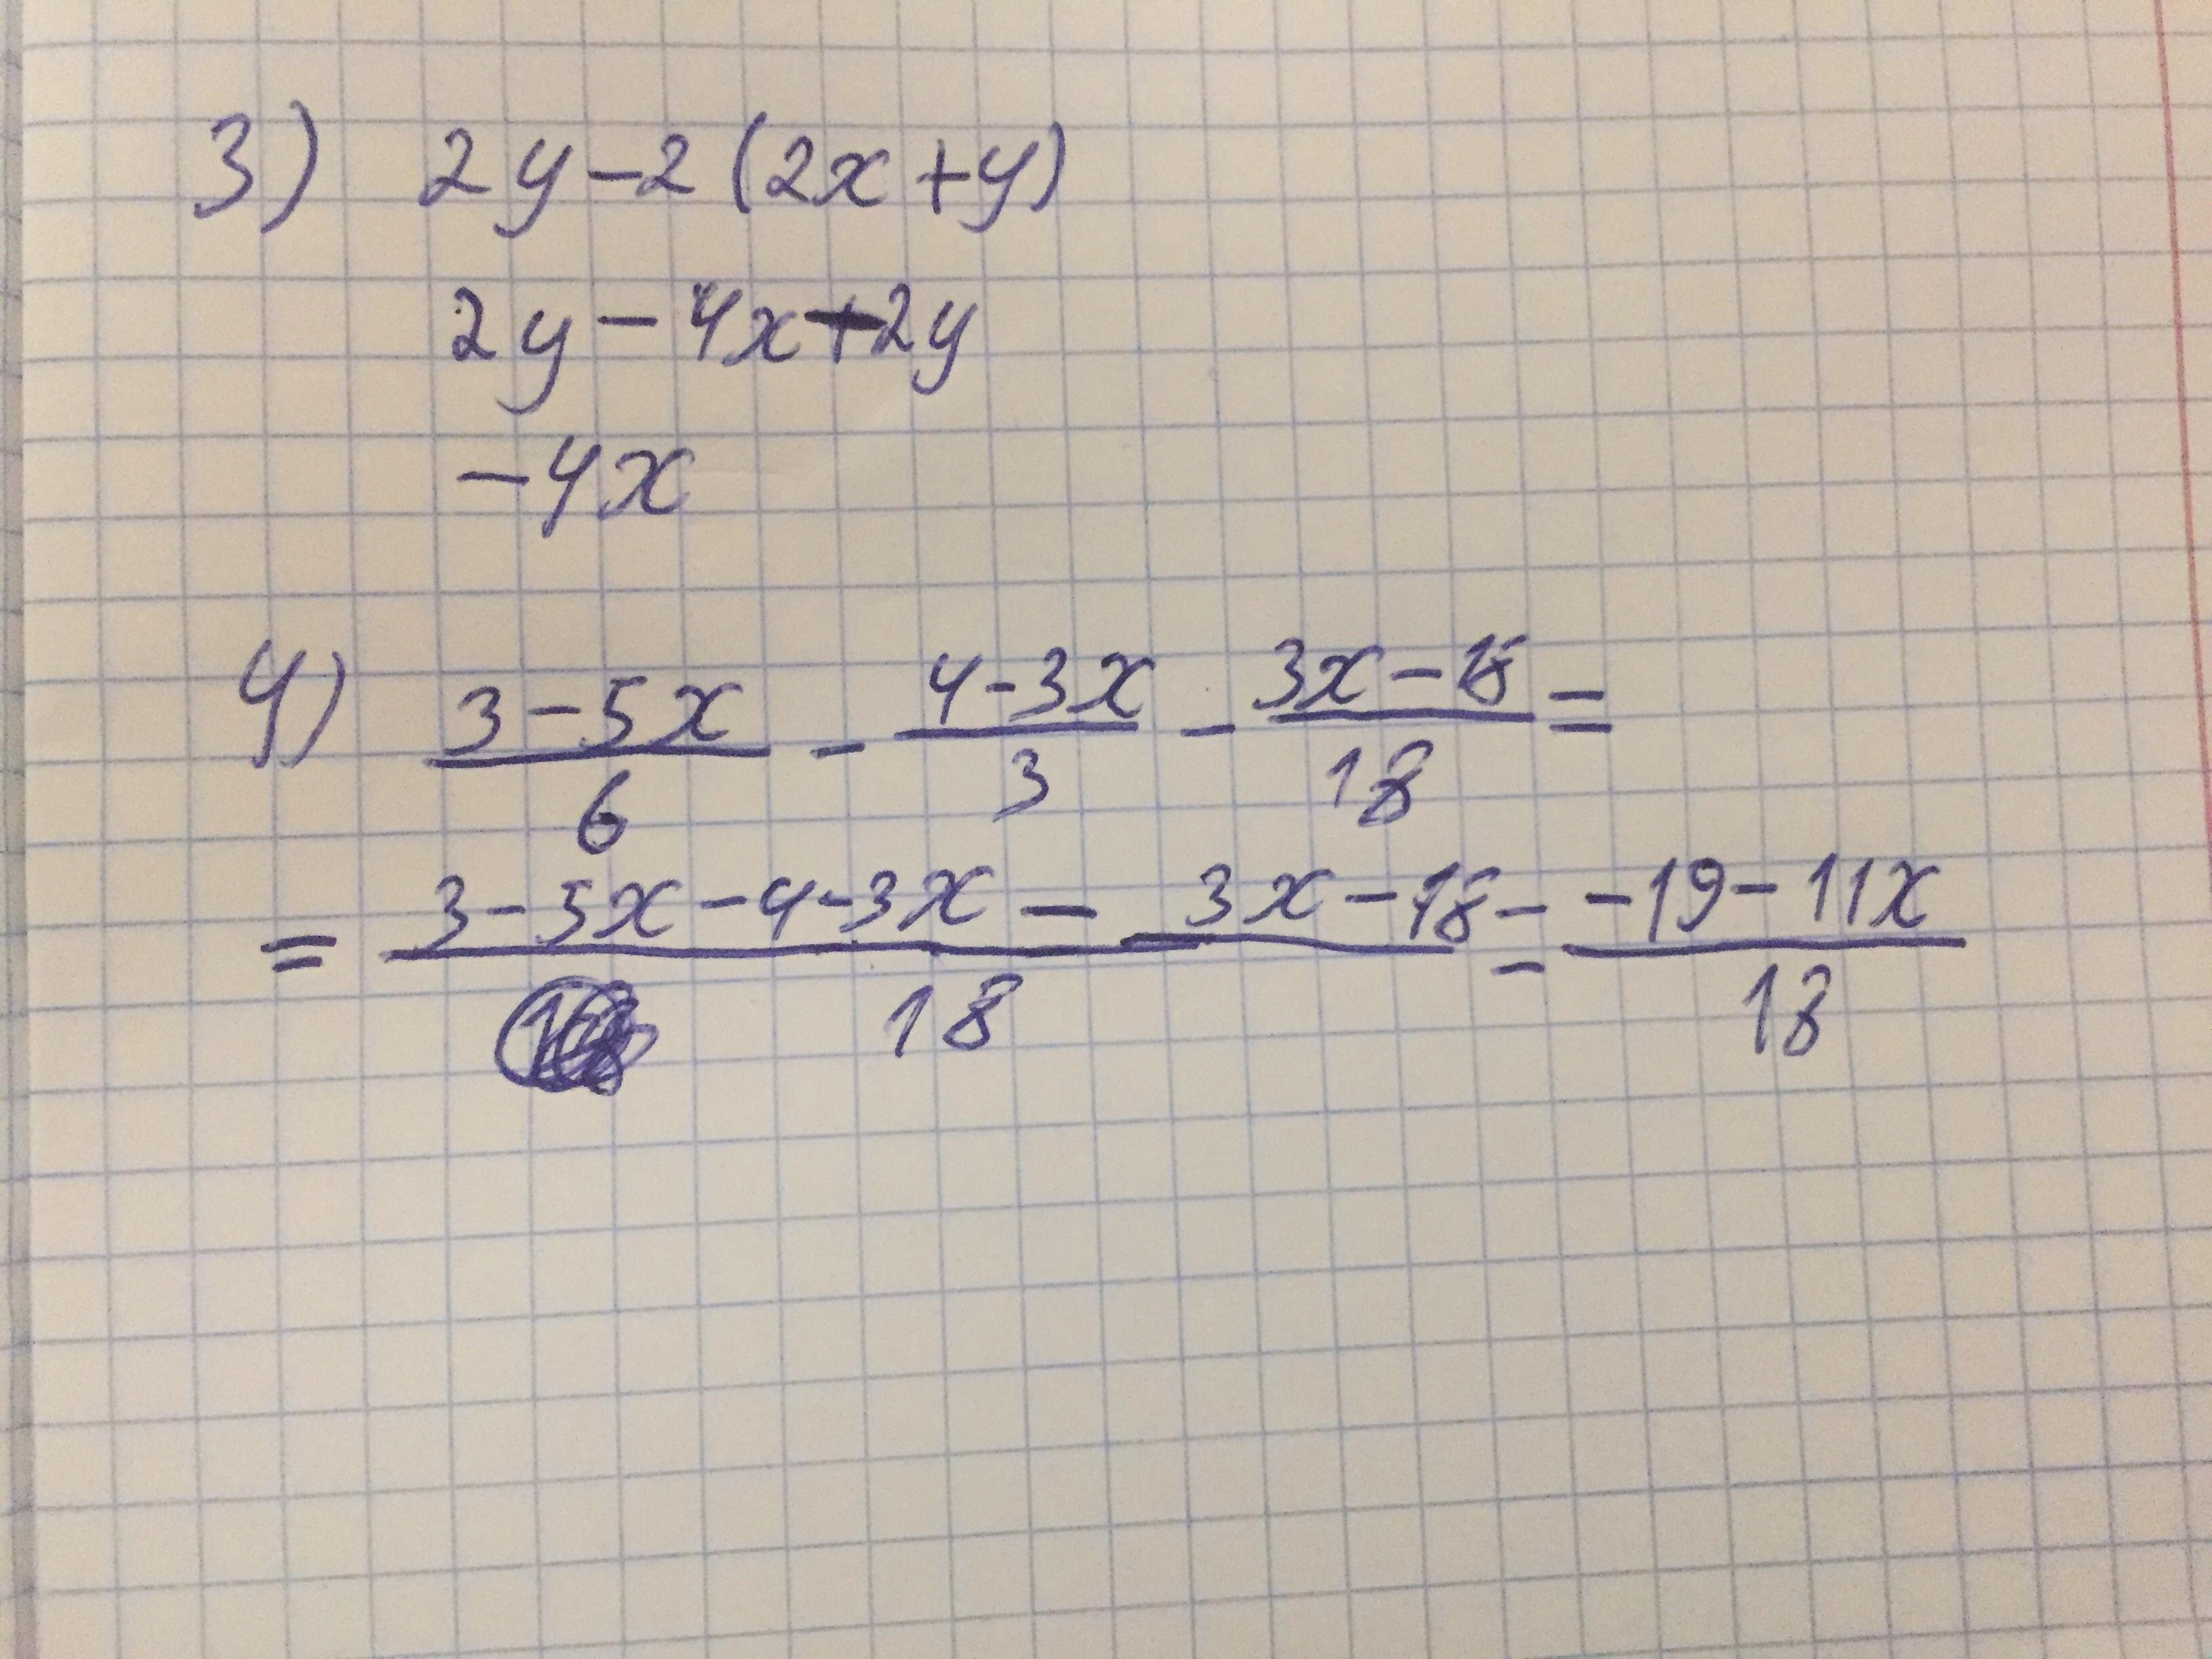 3) 2y-2(2x+y)
2y-4x-2y
-4x
4) (3-5x)/6 - (4-3x)/3 - (3x-18)/18 =
= (3-5x-4-3x-3x-18)/18 = (-19-11x)/18